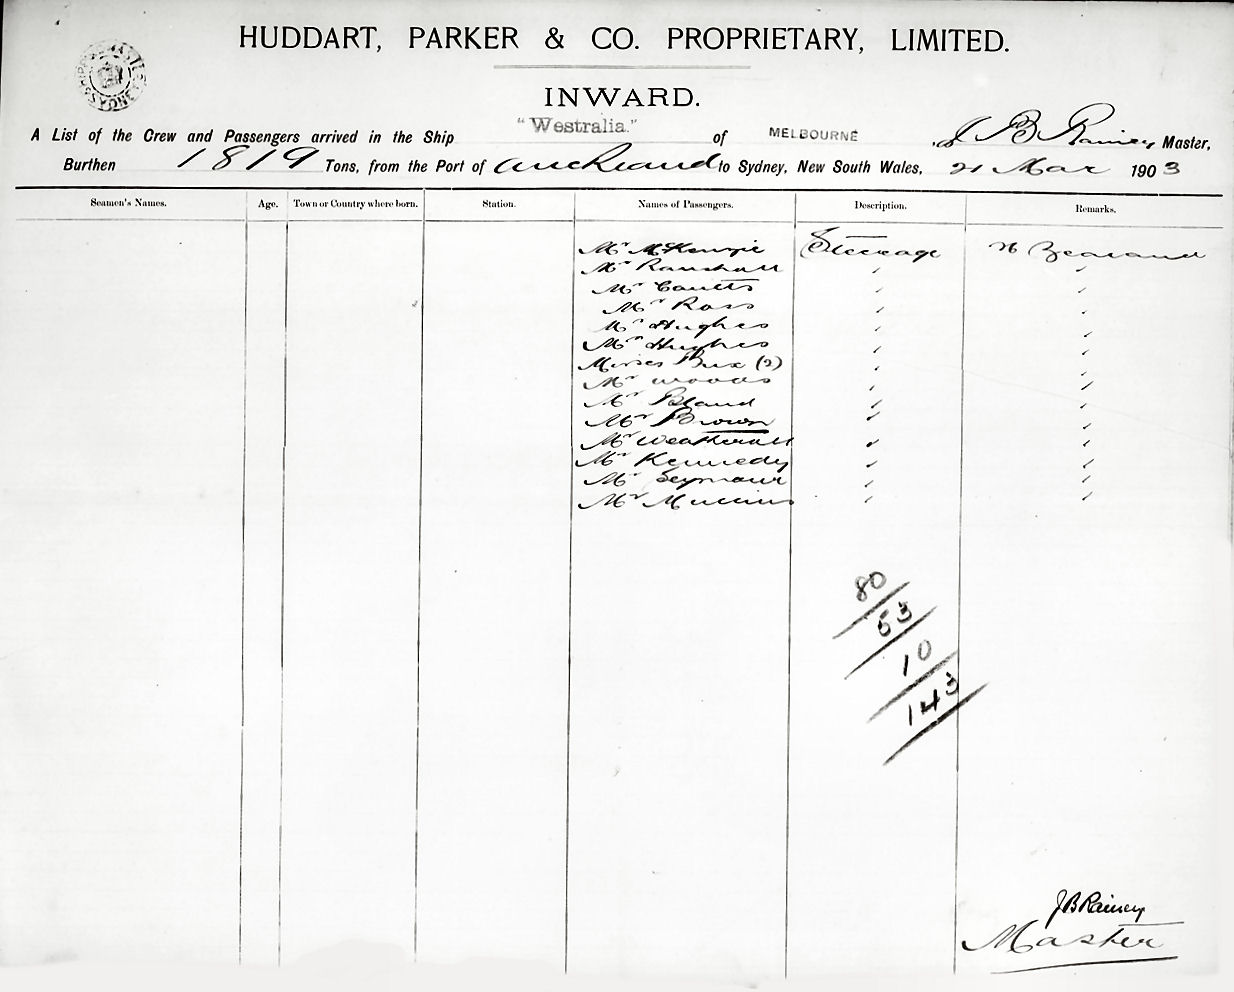 HUDDART, PARKER & CO. PROPRIETARY, LIMITED.
INWARD.
A List of the Crew and Passengers arrived in the Ship "Westralia." of MELBOURNE J B Rainey Master,
Burthen 1819 Tons, from the Port of Auckland to Sydney, New South Wales, 21 Mar 1903
Seamen's Names. Age. Town or Country where born. Station. Names of Passengers. Description. Remarks.
Mr McKenzie Steerage N Zealand
Mr " "
Mr Coutts " "
Mr Ross " "
Mr Hughes " "
Mrs Hughes " "
Misses Bux (2) " "
Mr Woods " "
Mr Bland " "
Mr Brown " "
Mr Weatherall " "
Mr Kennedy " "
Mr Seymour " "
Mr Mullins " "
80
53
10
143
J B Rainey
Master